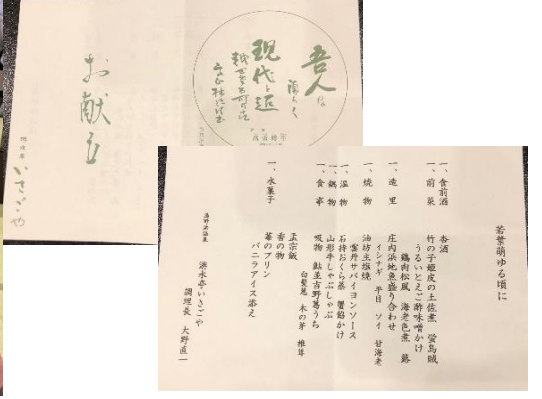 お献立
いさごや
吾人は
現代を
若葉萌ゆる頃に
一、食前酒 杏酒
一、前菜 竹の子姫皮の土佐煮 蛍烏賊
うるいとえご酢味噌かけ
鶏肉松風 海老色煮 蕗
一、造里 庄内浜地魚盛り合わせ
イシナギ 平目 ソイ 甘海老
一、焼物 油坊主塩焼
雲丹サバイヨンソース
一、温物 石持おくら蒸 蟹餡かけ
一、鍋物 山形牛しゃぶしゃぶ
一、食事 吸物 鮎並吉野葛うち
白髪葱 木の芽 椎茸
孟宗飯
香の物
一、水菓子 苺のプリン
バニラアイス添え
湯野浜温泉
游水亭いさごや
調理長 大野直一